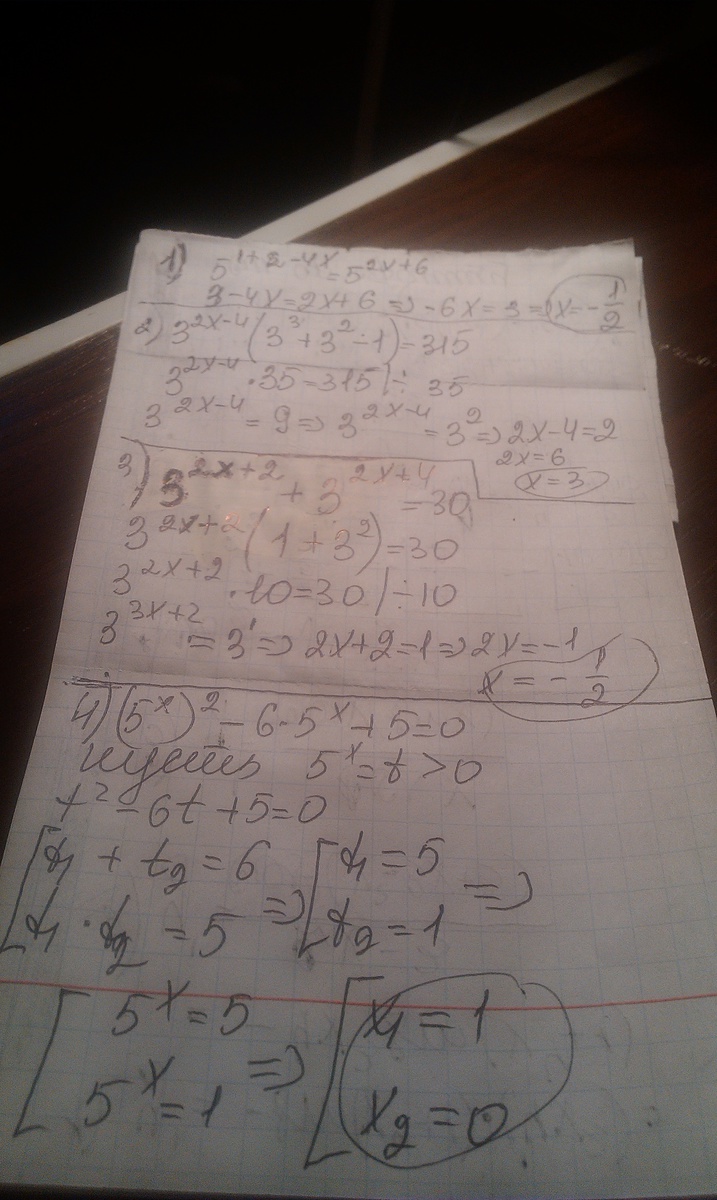 1) 5^{1+2-4x} = 5^{2x+6}
3-4x=2x+6 => -6x=3 => x=-1/2
2) 3^{2x-4}(3^3+3^2-1)=315
3^{2x-4}·35=315 |÷ 35
3^{2x-4} = 9 => 3^{2x-4} = 3^2 => 2x-4=2
2x=6
x=3
3) 3^{2x+2} + 3^{2x+4} = 30
3^{2x+2}(1+3^2)=30
3^{2x+2}·10=30 |÷10
3^{3x+2} = 3^1 => 2x+2=1 => 2x=-1
x = -1/2
4) (5^x)^2 - 6·5^x + 5=0
пусть 5^x = t > 0
t^2 - 6t + 5=0
[ t1 + t2 = 6 => [ t1 = 5 =>
t1 · t2 = 5 t2 = 1
[ 5^x = 5 => [ x1 = 1
5^x = 1 x2 = 0